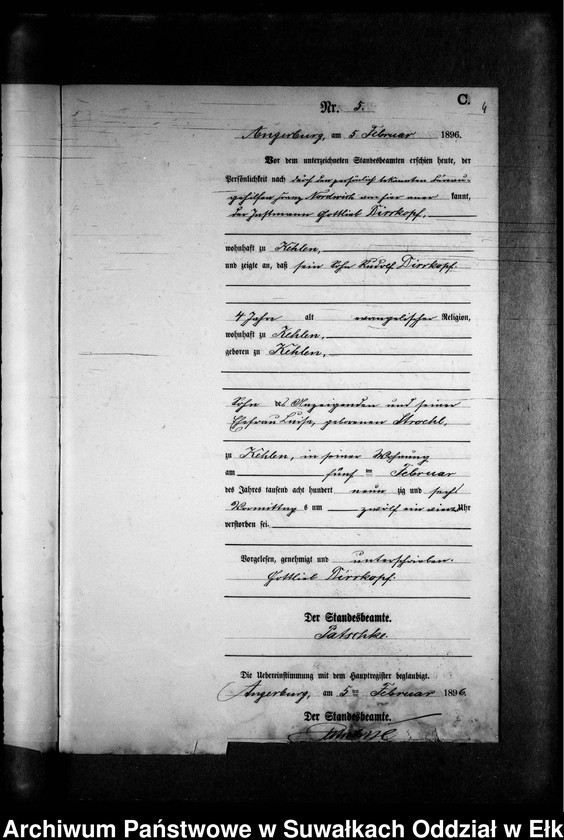 C.
4
Nr. 5.
Angerburg, am 5 Februar 1896.
Vor dem unterzeichneten Standesbeamten erschien heute, der
Persönlichkeit nach durch den persönlich bekannten Bureau-
gehilfen Franz Nordwich von hier aner kannt,
der Instmann Gottlieb Dirrkopf,
wohnhaft zu Kehlen,
und zeigte an, daß sein Sohn Rudolf Dirrkopf.
4 Jahre alt evangelischer Religion,
wohnhaft zu Kehlen,
geboren zu Kehlen,
Sohn des Anzeigenden und seiner
Ehefrau Luise, geborenen Stroehl,
zu Kehlen, in seiner Wohnung
am fünf ten Februar
des Jahres tausend acht hundert neun zig und sechs
Vormittag s um zwölf ein viertel Uhr
verstorben sei.
Vorgelesen, genehmigt und unterschrieben.
Gottlieb Dirrkopf.
Der Standesbeamte.
Patschke.
Die Uebereinstimmung mit dem Hauptregister beglaubigt.
Angerburg, am 5ten Februar 1896.
Der Standesbeamte.
Archiwum Państwowe w Suwałkach Oddział w Ełk